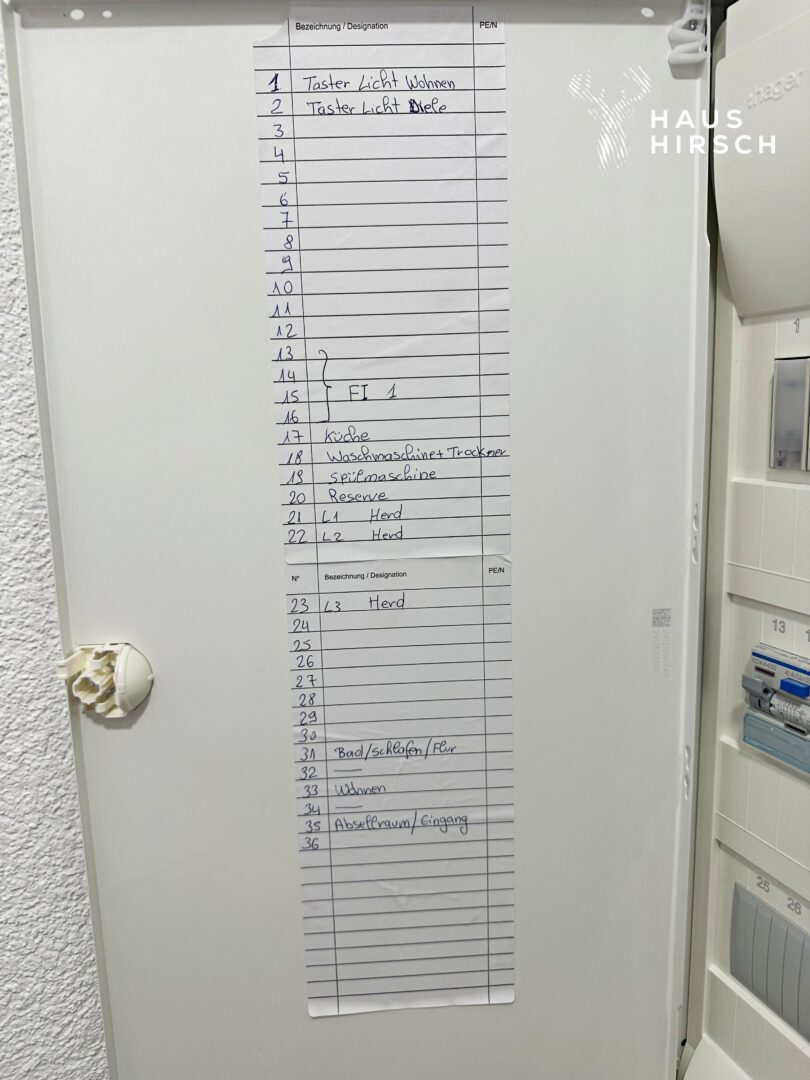 Bezeichnung / Designation PE/N
1 Taster Licht Wohnen
2 Taster Licht Diele
3
4
5
6
7
8
9
10
11
12
13
14
15 FI 1
16
17 Küche
18 Waschmaschine+Trockner
19 Spülmaschine
20 Reserve
21 L1 Herd
22 L2 Herd
N° Bezeichnung / Designation PE/N
23 L3 Herd
24
25
26
27
28
29
30
31 Bad/Schlafen/Flur
32 —
33 Wohnen
34 —
35 Absellraum/Eingang
36
HAUS
HIRSCH
:hager
1
13
25 26